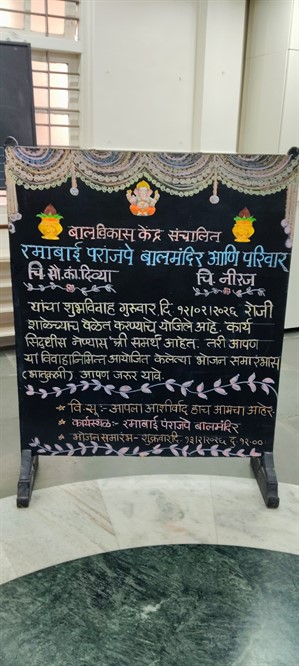 बालविकास केंद्र संचालित
रमाबाई परांजपे बालमंदिर आणि परिवार
चि.सौ.कां.दिव्या चि. नीरज
यांचा शुभविवाह गुरुवार, दि. १२/०२/२०२६ रोजी
शाळेच्याच वेळेत करण्याचे योजिले आहे. कार्य
सिद्धीस नेण्यास 'श्री समर्थ' आहेत. तरी आपण
या विवाहानिमित्त आयोजित केलेल्या भोजन समारंभास
(भातुकली) आपण जरुर यावे.
वि.सू.:- आपला आशीर्वाद हाच आमचा आहेर.
कार्यस्थळ:- रमाबाई परांजपे बालमंदिर
भोजन समारंभ:- शुक्रवार दि: १३/२/२०२६ दु. १२.००